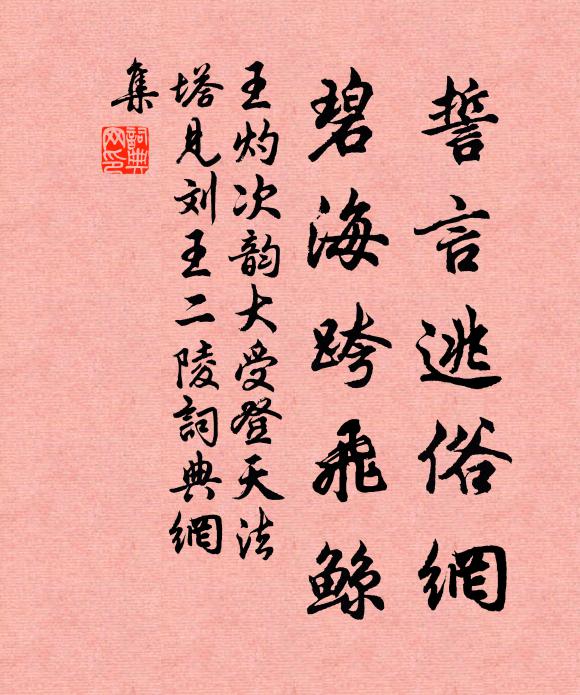 誓言逃俗網
碧海跨飛鯨
王灼次韵大受登天法
塔見刘王二陵詞典網
集
詞典
网印